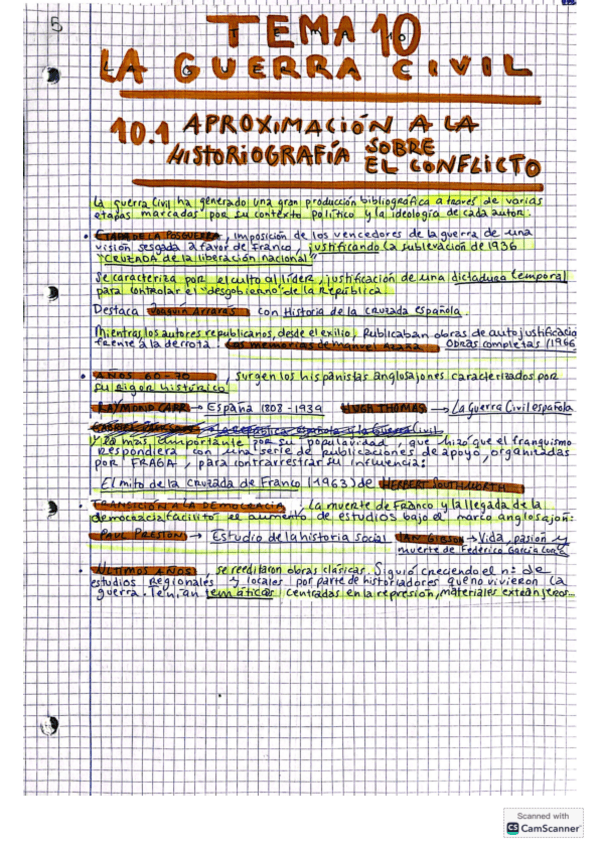 5
TEMA 10
LA GUERRA CIVIL
10.1 APROXIMACIÓN A LA
HISTORIOGRAFÍA SOBRE
EL CONFLICTO
La guerra Civil ha generado una gran producción bibliográfica a través de varias
etapas marcadas por su contexto político y la ideología de cada autor.
• ETAPA DE LA POSGUERRA, imposición de los vencedores de la guerra de una
visión sesgada a favor de Franco, justificando la sublevación de 1936
"CRUZADA de la liberación nacional"
Se caracteriza por el culto al líder, justificación de una dictadura temporal
para controlar el "desgobierno" de la República
Destaca Joaquín Arrarás con Historia de la cruzada española.
Mientras los autores republicanos, desde el exilio, publicaban obras de autojustificació
frente a la derrota. Las memorias de Manuel Azaña Obras completas (1966
• AÑOS 60-70, surgen los hispanistas anglosajones caracterizados por
su rigor histórico
RAYMOND CARR → España 1808-1939 HUGH THOMAS → La Guerra Civil española
y la más importante por su popularidad, que hizo que el franquismo
respondiera con una serie de publicaciones de apoyo, organizadas
por FRAGA, para contrarrestrar su influencia:
El mito de la cruzada de Franco (1963) de HERBERT SOUTHWORTH
• TRANSICIÓN A LA DEMOCRACIA, La muerte de Franco y la llegada de la
democracia facilitó el aumento de estudios bajo el marco anglosajón:
PAUL PRESTON → Estudio de la historia social IAN GIBSON → Vida, pasión y
muerte de Federico García Lorca
• ÚLTIMOS AÑOS, se reeditaron obras clásicas. Siguió creciendo el nº de
estudios regionales y locales por parte de historiadores que no vivieron la
guerra. Tenían temáticas centradas en la represión, materiales extranjeros...
Scanned with
CS CamScanner